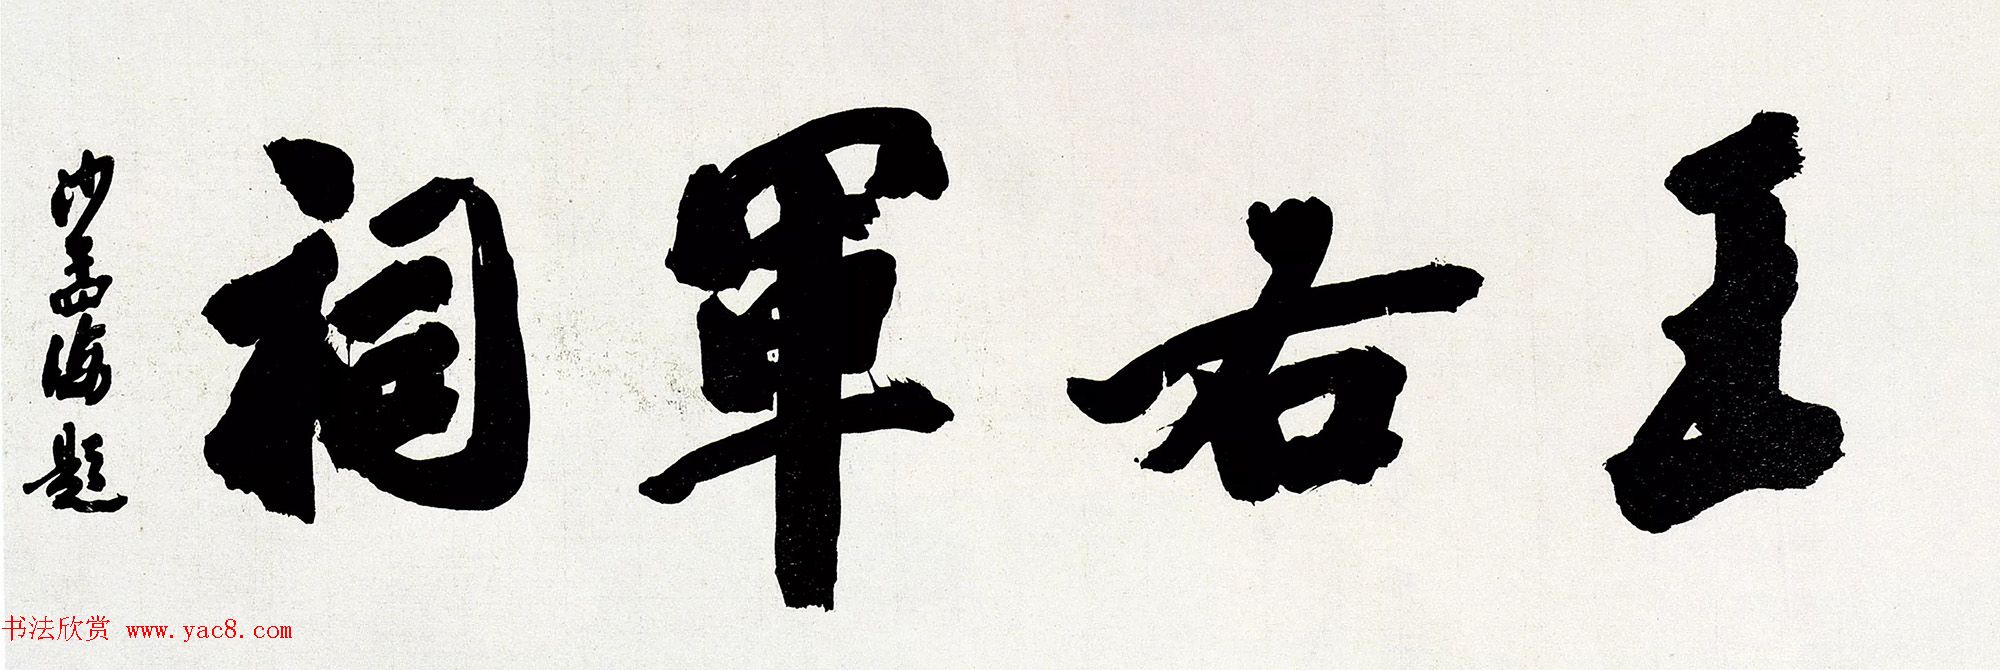 王右軍祠
沙孟海題
书法欣赏 www.yac8.com